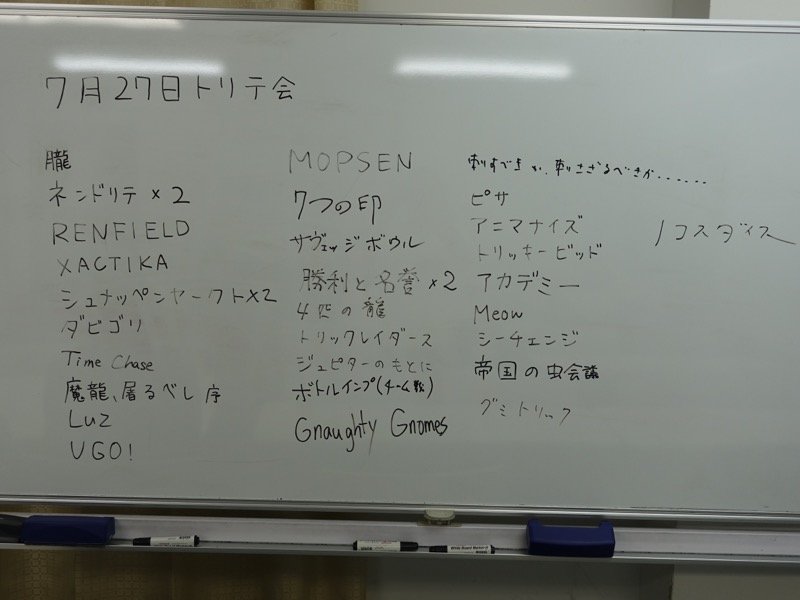 7月27日トリテ会
朧
ネンドリテ×2
RENFIELD
XACTIKA
シュナッペンヤークト×2
ダビゴリ
Time Chase
魔龍、屠るべし 序
Luz
UGO!
MOPSEN
7つの印
サヴェッジボウル
勝利と名誉×2
4匹の龍
トリックレイダース
ジュピターのもとに
ボトルインプ(チーム戦)
Gnaughty Gnomes
刺すべきか、刺さざるべきか......
ピサ
アニマナイズ
トリッキービッド
アカデミー
Meow
シーチェンジ
帝国の虫会議
グミトリック
ノコスダイス